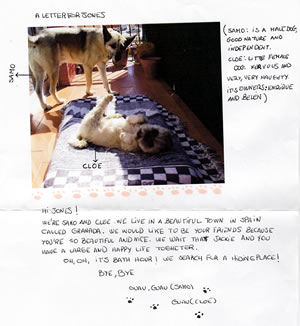 A LETTER FOR JONES
(SAMO: IS A MALE DOG,
GOOD NATURE AND
INDEPENDENT.
CLOE: LITTLE FEMALE
DOG. NERVOUS AND
VERY, VERY NAUGHTY.
ITS OWNERS: ENRIQUE
AND BELEN)
SAMO
CLOE
HI JONES!
WE'RE SAMO AND CLOE. WE LIVE IN A BEAUTIFUL TOWN IN SPAIN
CALLED GRANADA. WE WOULD LIKE TO BE YOUR FRIENDS BECAUSE
YOU'RE SO BEAUTIFUL AND NICE. WE WAIT THAT JACKIE AND YOU
HAVE A LARGE AND HAPPY LIFE TOGHETER.
OH, OH, IT'S BATH HOUR! WE SEARCH FOR A HIDING PLACE!
BYE, BYE
GUAU, GUAU (SAMO)
GUAU (CLOE)